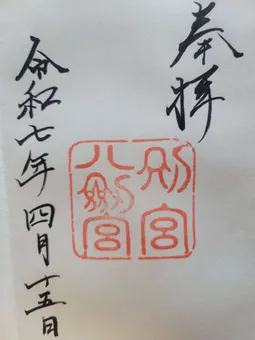 奉拝
別宮
八剣宮
令和七年四月十五日